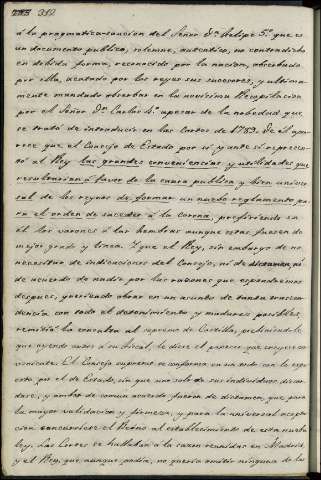 312
á la pragmatica-sancion del Señor Dn. Felipe 5º. que es
un documento publico, solemne, autentico, no contradicho
en debida forma, reconocido por la nacion, observado
por ella, acatado por los reyes sus sucesores, y ultima
mente mandado observar en la novisima Recopilacion
por el Señor Dn. Carlos 4º apesar de la novedad que
se trató de introducir en las Cortes de 1789. De él apa
rece que el Consejo de Estado por sí y ante sí represen
tó al Rey las grandes conveniencias y utilidades que
resultarian á favor de la causa publica y bien univer
sal de los reynos de formar un nuevo reglamento pa
ra el orden de suceder á la corona, prefiriendo en
él los varones á las hembras aunque estas fuesen de
mejor grado y linea. Y que el Rey, sin embargo de no
necesitar de indicaciones del Consejo, ni de dictamen, ni
de acuerdo de nadie por las razones que espondremos
despues, queriendo obrar en un asunto de tanta trascen
dencia con todo el detenimiento y madurez posibles,
remitió la consulta al supremo de Castilla, pidiendole
que oyendo antes á su fiscal, le diese el parecer que creyese con
veniente. El Consejo supremo se conforma en un todo con lo espu
esto por el de Estado, sin que uno solo de sus individuos discor
dase, y ambos de comun acuerdo fueron de dictamen, que para
la mayor validacion y firmeza, y para la universal acepta
cion concurriese el Reino al establecimiento de esta nueva
ley. Las Cortes se hallaban á la sazon reunidas en Madrid,
y el Rey, que aunque podia, no queria omitir ninguna de las